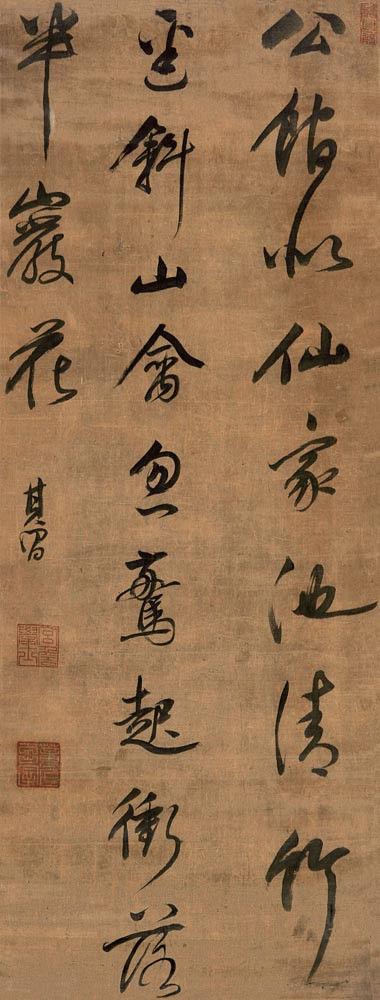 公館似仙家池清竹
逕斜山禽忽驚起衝落
半巖花
其昌